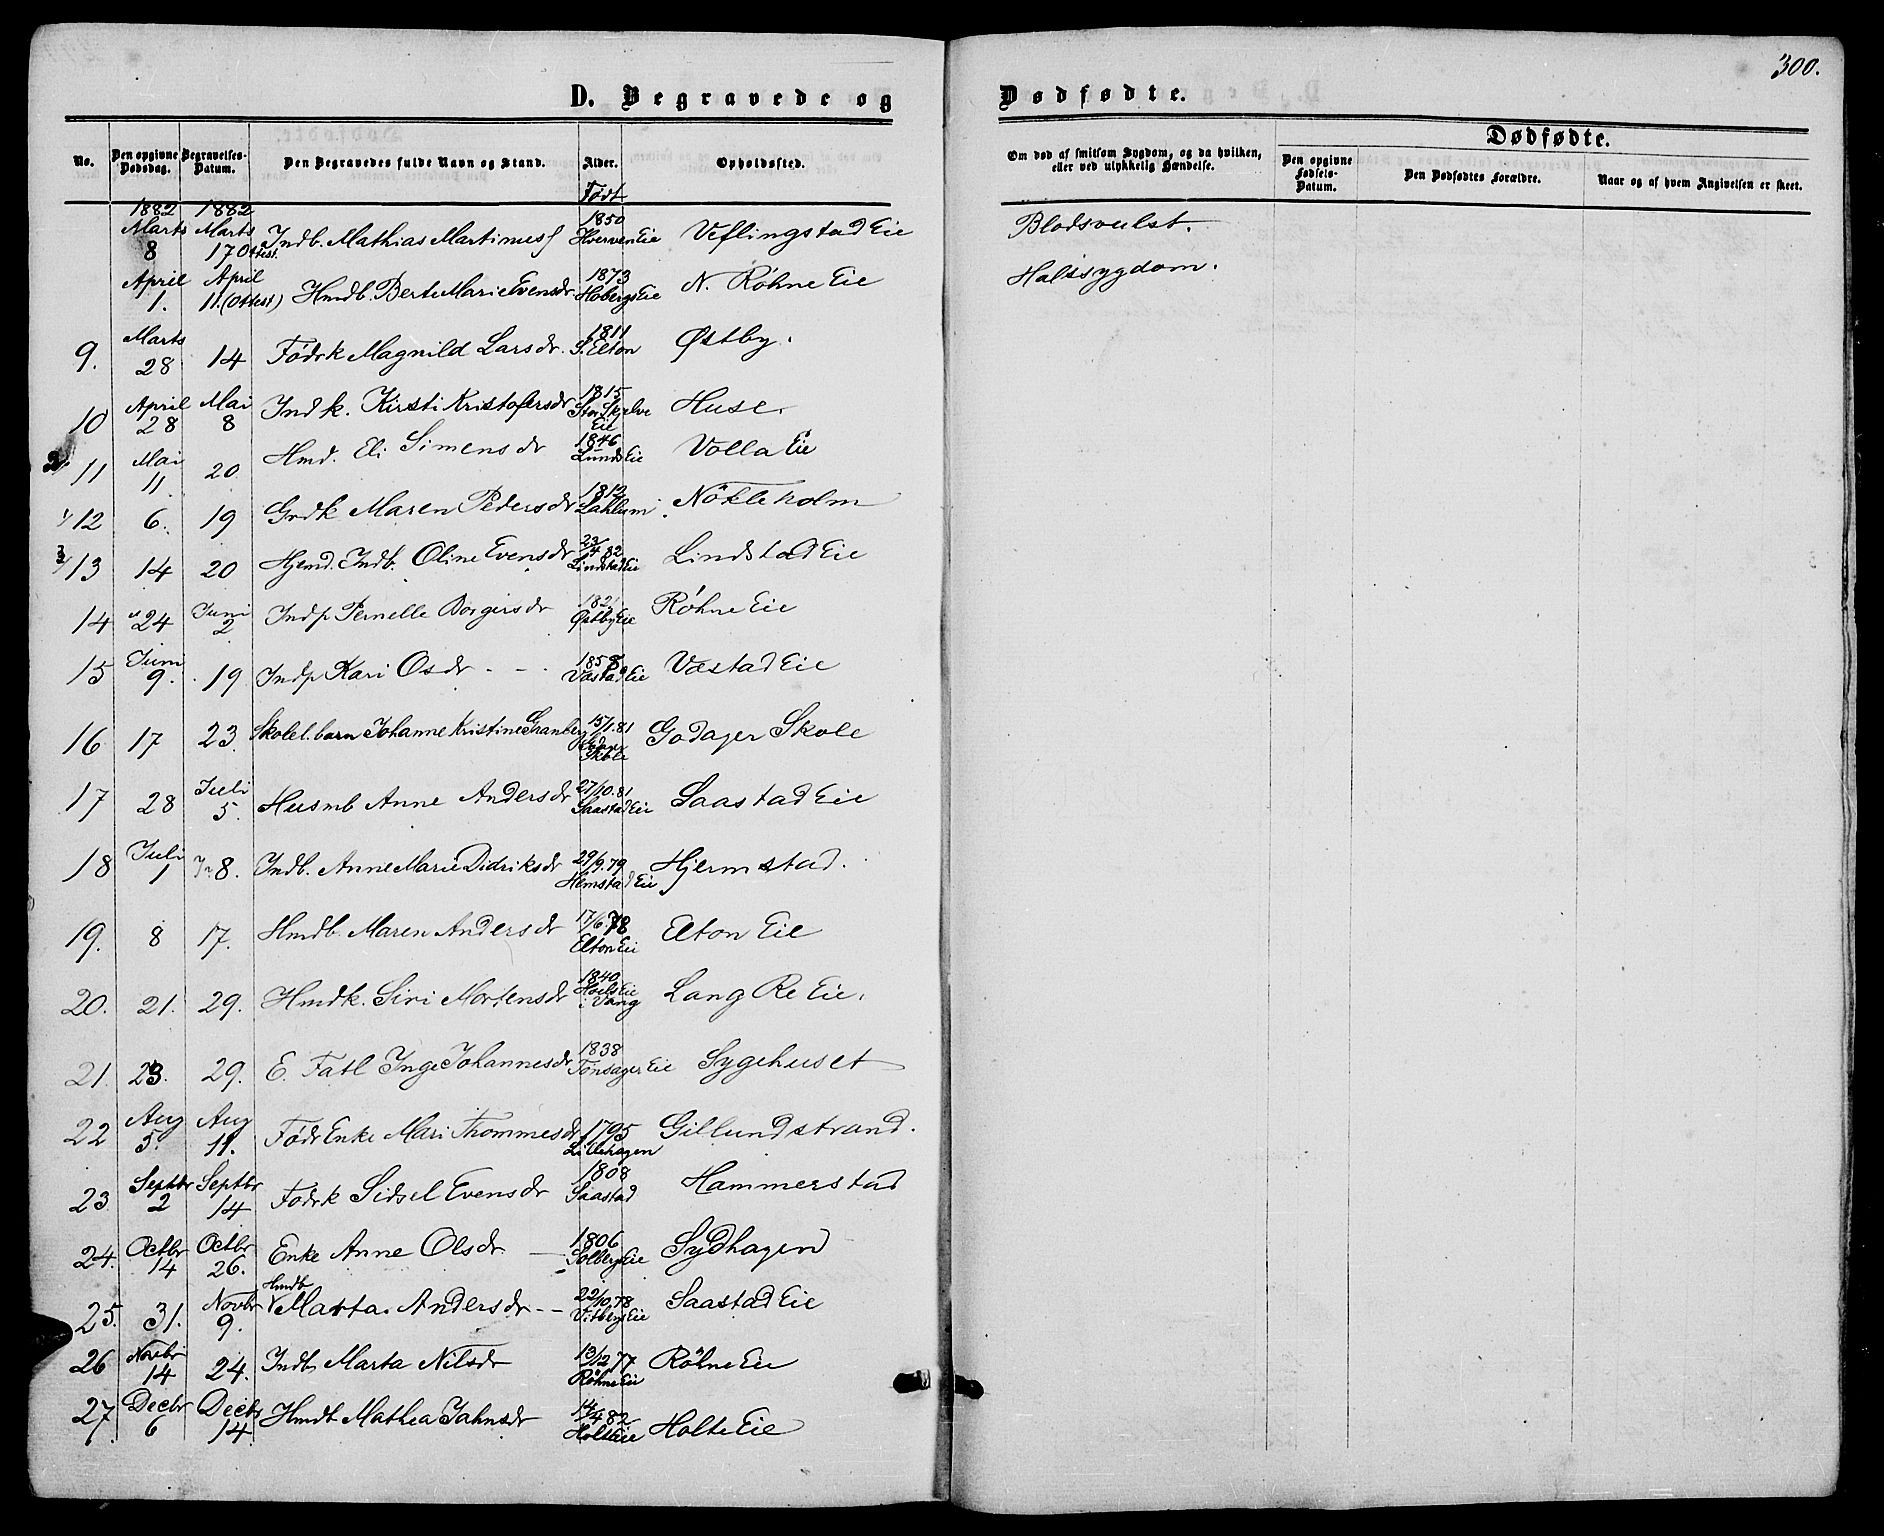 300.
D. Begravede og
Dødfødte.
No. Den opgivne Dødsdag. Begravelses-Datum. Den Begravedes fulde Navn og Stand. Alder. Opholdssted.
Om død af smitsom Sygdom, og da hvilken, eller ved ulykkelig Hændelse.
Dødfødte.
Den opgivne Fødsels-Datum. Den Dødfødtes Forældre. Naar og af hvem Angivelsen er skeet.
Født
1882 Marts 8 1882 Marts 17 Indb. Mathias Martinuss 1850 Hverven Eie Veflingstad Eie Blodsvulst.
April 1. April 11. (Ottest) Hmdb. Berte Marie Evensdr 1873 Hobergs Eie N. Røhne Eie Halssygdom.
9. Marts 28 14 Født k Magnild Larsdr. 1811 S. Elton Østby.
10 April 28 Mai 8 Indk. Kirsti Kristofersdr 1815 Stor Skjelve Eie Huse.
11 Mai 11 20 Hmd. Eli Simensdr 1846 Lunds Eie Volla Eie
12 6. 19 Grdk Maren Pedersdr 1812 Løkleholm
13 14 20 Hjemd. Indb. Oline Evensdr 23/4 82 Lindstad Eie Lindstad Eie
14 24 Juni 2 Indp Pernelle Borgersdr 1821 Østby Eie Røhne Eie
15 Juni 9. 19 Indp Kari Osdr - - 1858 Væstad Eie Væstad Eie
16 17 23. Skolel. barn Johanne Kristine Granberg 15/1.81 Godager Skole Godager Skole
17 28 Juli 5. Husmb Anne Andersdr 27/10.81 Saastad Eie Saastad Eie
18 Juli 1 8. Indb. Anne Marie Didriksdr 29/9.79 Hemstad Eie Hjermstad.
19. 8 17. Hmdb. Maren Andersdr 17/6.78 Elton Eie Elton Eie
20. 21. 29. Hmdk. Siri Mortensdr 1840 i Vang Lang Re Eie.
21. 23. 29. E. Fatl Inge Johannesdr 1838 Tønsager Eie Sygehuset
22 Aug 5. Aug 11. Født Enke Mari Thommesdr 1795 Lillehagen Gillundstrand.
23 Septbr 2 Septbr 14 Født k Sidsel Evensdr 1808 Saastad Hammerstad
24. Octbr 14 Octbr 26. Enke Anne Olsdr 1806 Solberg Eie Sydhagen
25. 31. Novbr 9. Hmdb Marta Andersdr - - 22/10.78 Vitberg Eie Saastad Eie
26 Novbr 14 24. Indb Marta Nilsdr 13/12 77 Røhne Eie Røhne Eie
27. Decbr 6 Decbr 14. Hmdb Mathea Jahnsdr 14/4 82 Holte Eie Holte Eie